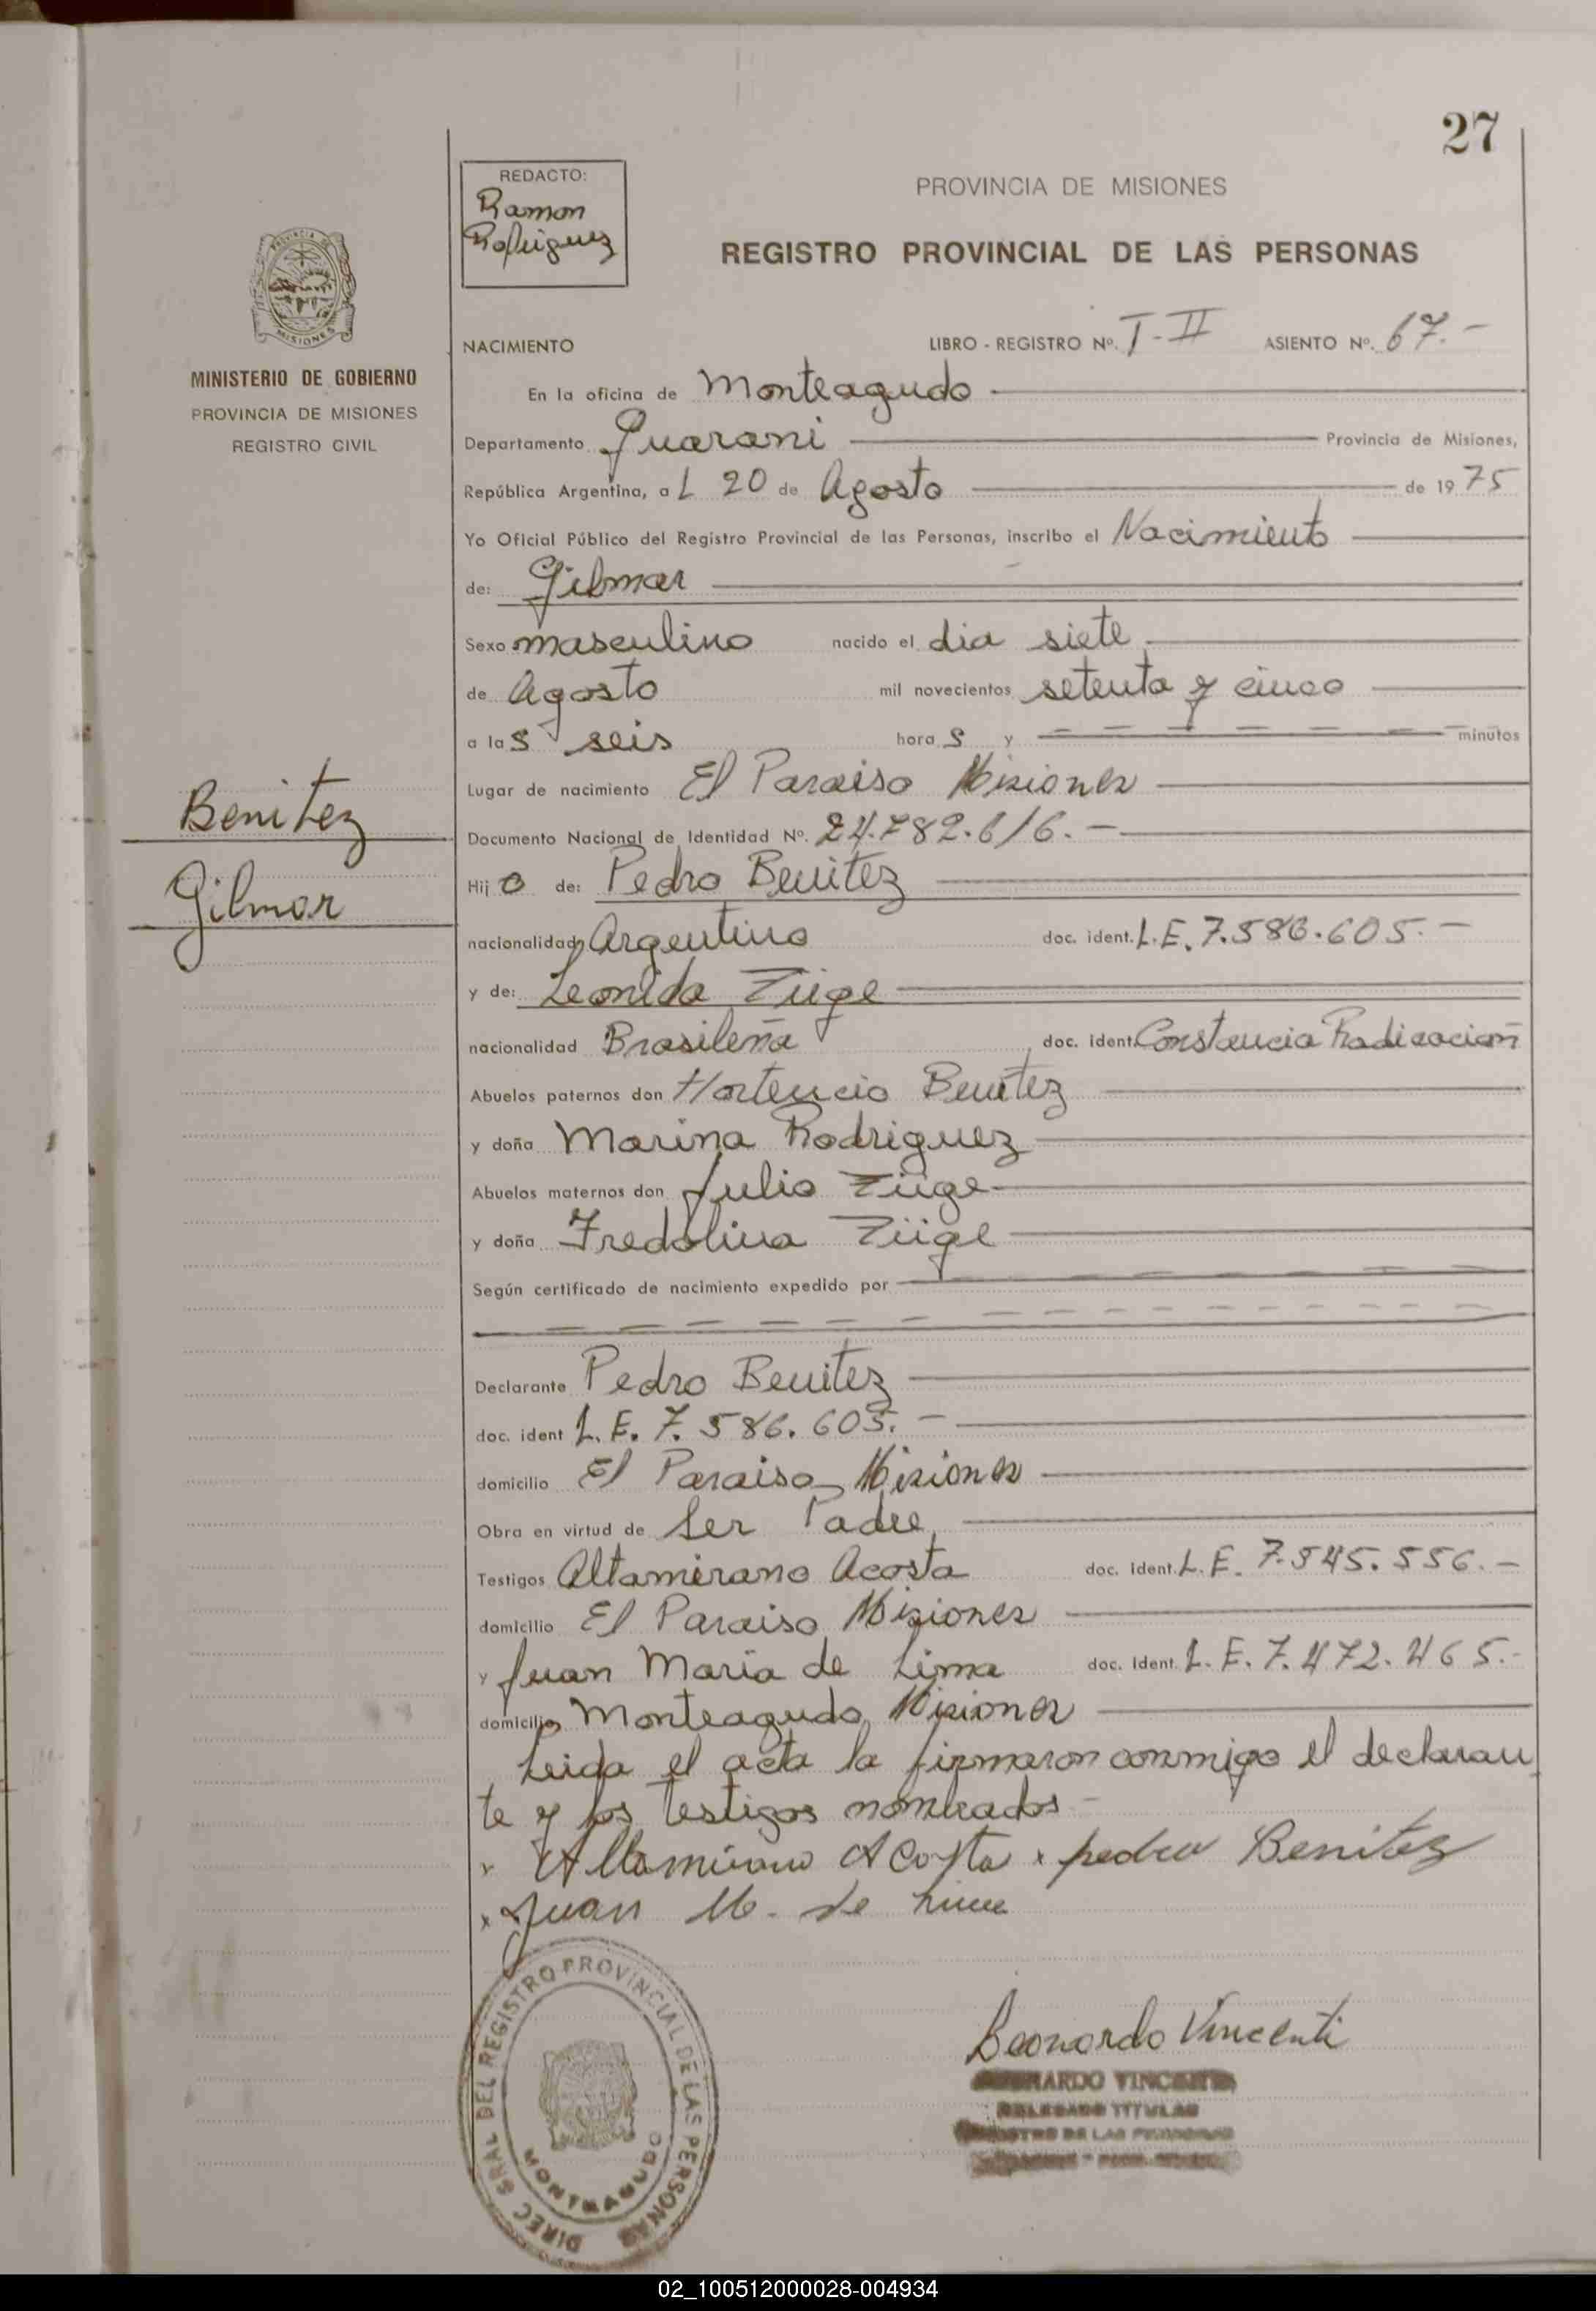 27
REDACTO:
Ramon
Rodriguez
PROVINCIA DE MISIONES
REGISTRO PROVINCIAL DE LAS PERSONAS
PROVINCIA DE
MISIONES
MINISTERIO DE GOBIERNO
PROVINCIA DE MISIONES
REGISTRO CIVIL
NACIMIENTO LIBRO - REGISTRO Nº. T-II ASIENTO Nº. 67.-
En la oficina de Monteagudo
Departamento Guarani Provincia de Misiones,
República Argentina, a L 20 de Agosto de 1975
Yo Oficial Público del Registro Provincial de las Personas, inscribo el Nacimiento
de: Gilmar
Sexo masculino nacido el dia siete
de Agosto mil novecientos setenta y cinco
a las seis horas y minutos
Lugar de nacimiento El Paraiso Misiones
Benitez
Documento Nacional de Identidad Nº. 24.782.616.-
Gilmar
Hijo de: Pedro Benitez
nacionalidad Argentino doc. ident. L.E. 7.586.605.-
y de: Leonida Züge
nacionalidad Brasileña doc. ident. Constancia Radicación
Abuelos paternos don Hortencio Benitez
y doña Marina Rodriguez
Abuelos maternos don Julio Züge
y doña Fredolina Züge
Según certificado de nacimiento expedido por
Declarante Pedro Benitez
doc. ident L.E. 7.586.605.-
domicilio El Paraiso Misiones
Obra en virtud de Ser Padre
Testigos Altamirano Acosta doc. ident. L.E. 7.545.556.-
domicilio El Paraiso Misiones
y Juan Maria de Lima doc. ident. L.E. 7.472.465.-
domicilio Monteagudo Misiones
Leida el acta la firmaron conmigo el declaran
te y los testigos nombrados -
x Altamirano Acosta x pedro Benitez
x Juan M. de Lima
DIREC. GRAL DEL REGISTRO PROVINCIAL DE LAS PERSONAS
MONTEAGUDO
Leonardo Vincenti
LEONARDO VINCENTI
DELEGADO TITULAR
02_100512000028-004934